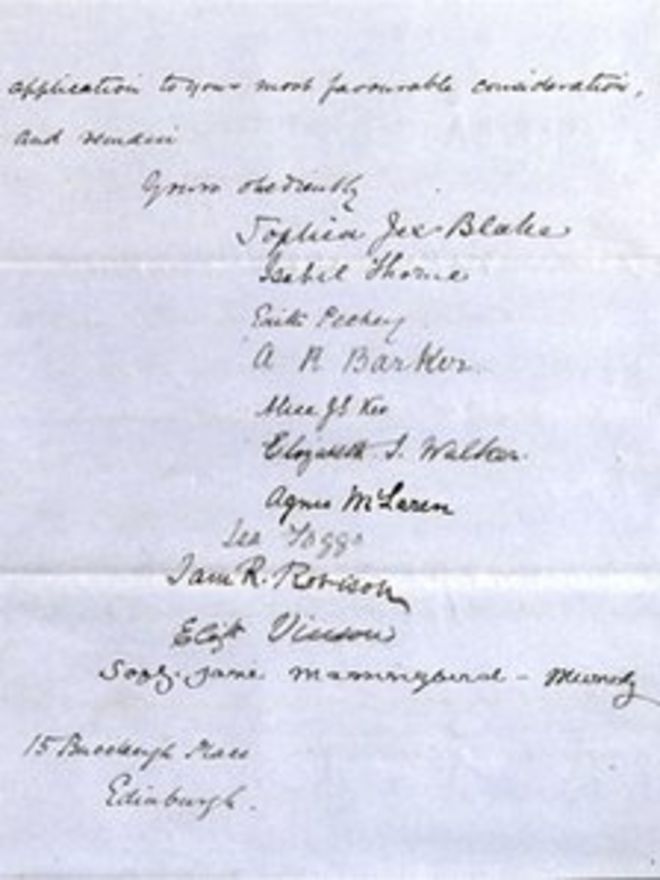 application to your most favourable consideration,
and remain
Yours obediently
Sophia Jex-Blake
Isabel Thorne
Edith Pechey
A R Barker
Alice J S Ker
Elizabeth I. Walker
Agnes McLaren
Jane R. Robison
Elizth Vinson
Jane
15 Buccleugh Place
Edinburgh.